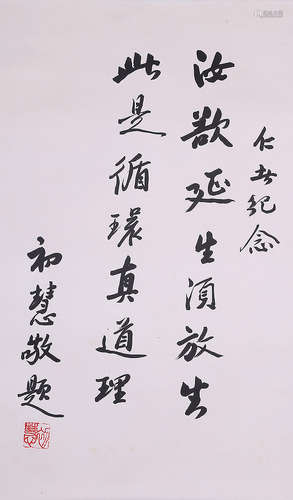 仁者纪念
汝欲延生须放生
此是循環真道理
初慧敬题